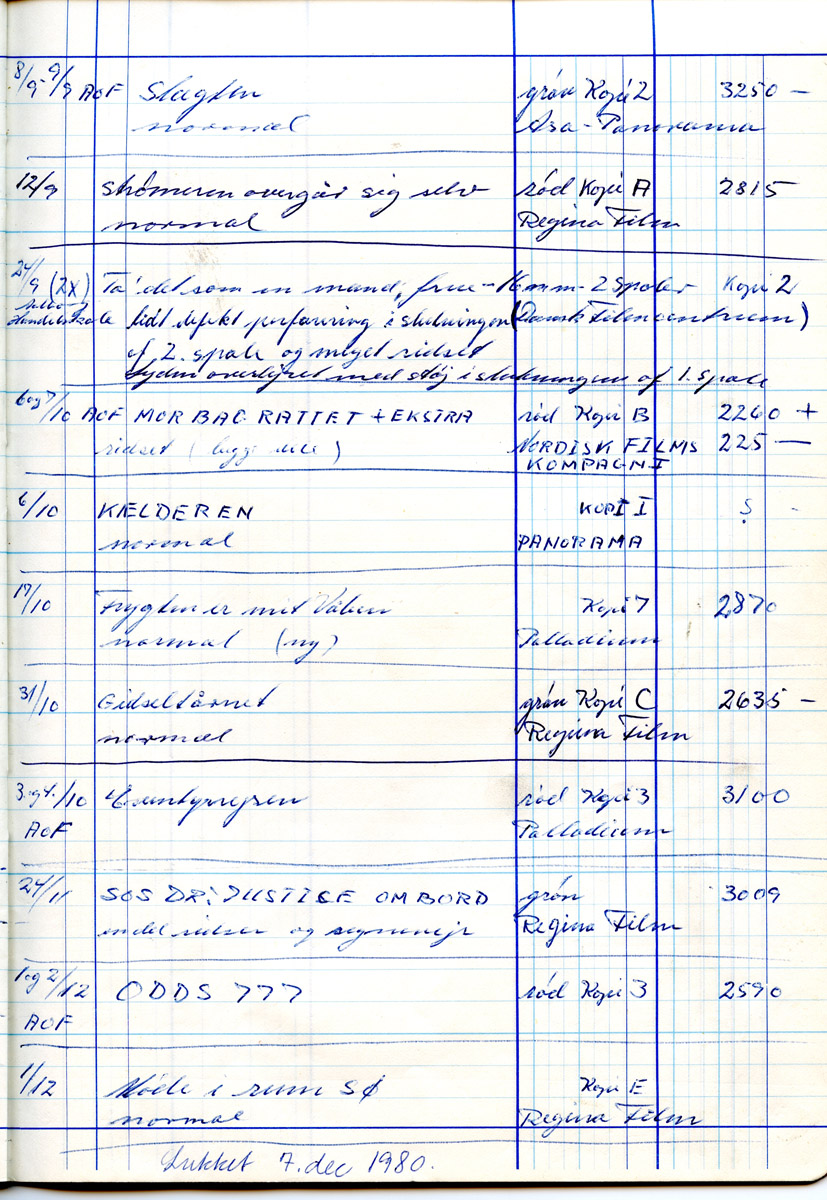 8/9 - 9/9 AOF Slægten grön Kopi 2 3250 -
normal Asa-Panorama
12/9 Strömeren overgår sig selv röd Kopi A 2815
normal Regina Film
24/9 (2X) Ta' det som en mand, frue - 16mm - 2 spoler Kopi 2
Handelsskole lidt defekt perforering i slutningen (Dansk Filmcentrum)
af 2. spole og meget ridset
lyden overlejret med stöj i slutningen af 1. spole
6 og 7/10 AOF MOR BAG RATTET + EKSTRA röd Kopi B 2260 +
ridset (begge dele) NORDISK FILMS 225 -
KOMPAGNI
6/10 KÆLDEREN KOPI I S -
normal PANORAMA
17/10 Frygten er mit Våben Kopi 7 2870
normal (ny) Palladium
31/10 Gidseltårnet grön Kopi C 2635 -
normal Regina Film
3. og 4./10 Eventyrrejsen röd Kopi 3 3100
AOF Palladium
24/11 SOS DR. JUSTICE OMBORD grön 3009
en del ridser og regnvejr Regina Film
1 og 2/12 ODDS 777 röd Kopi 3 2590
AOF
1/12 Möde i rum SÖ Kopi E
normal Regina Film
Lukket 7. dec 1980.